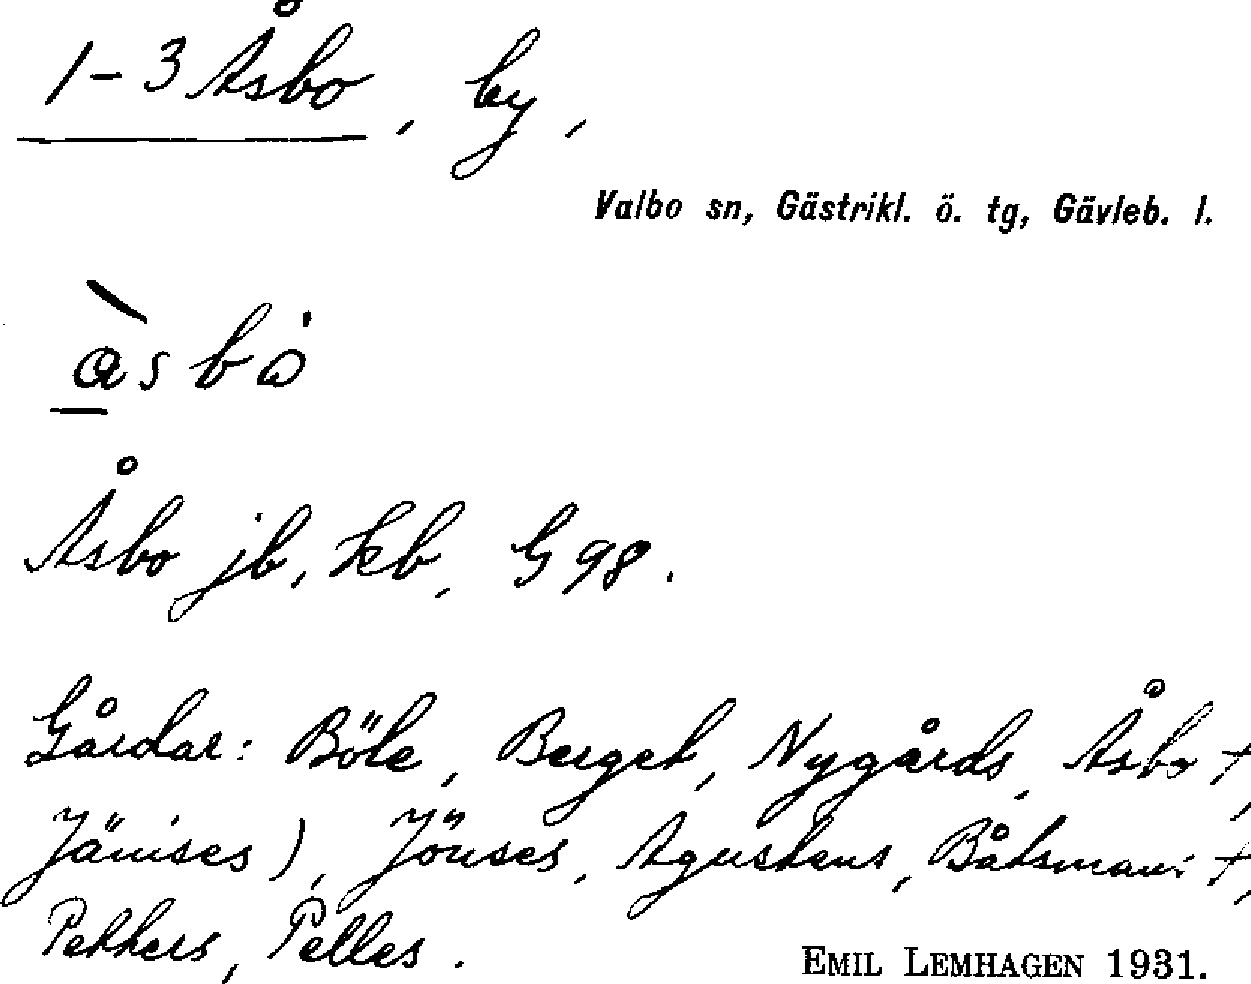 1-3 Åsbo, by,
Valbo sn, Gästrikl. ö. tg, Gävleb. l.
Åsbo jb, kb, G 98.
Gårdar: Böle, Berget, Nygårds, Åsbo †,
Jänises), Jönses, Agustens, Båtsmans †,
Pekkers, Pelles.
EMIL LEMHAGEN 1931.